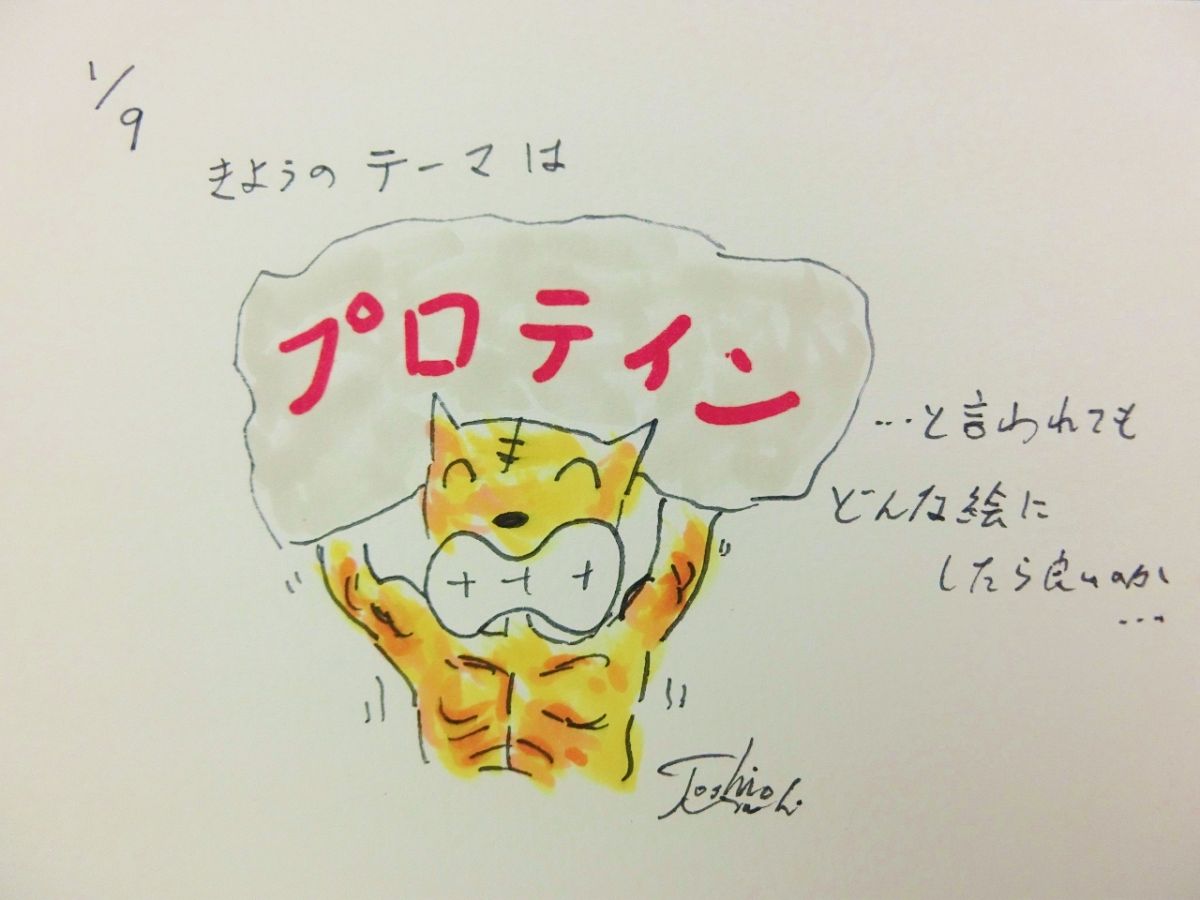 1/9
きようのテーマは
プロティン
…と言われても
どんな絵に
したら良いのか
…
Toshio